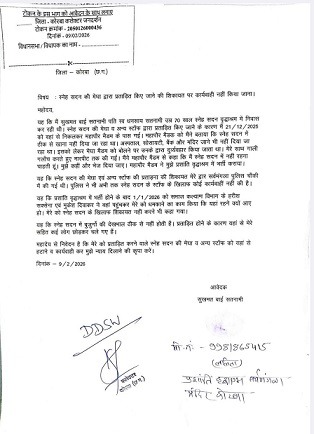 टोकन के इस भाग को आवेदन के साथ लगाए
जिला - कोरबा कलेक्टर जनदर्शन
टोकन क्रमांक - 2050126000436
दिनांक - 09/02/2026
विधानसभा / विधायक का नाम
जिला – कोरबा (छ.ग.)
विषय : स्नेह सदन की मेघा द्वारा प्रताड़ित किए जाने की शिकायत पर कार्यवाही नहीं किया जाना।
महोदय,
यह कि मैं सुखमत बाई सतनामी पति स्व धनसाय सतनामी उम्र 70 साल स्नेह सदन वृद्धाश्रम में निवास
कर रही थी। स्नेह सदन की मेघा व अन्य स्टॉफ द्वारा प्रताड़ित किए जाने के कारण में 21/12/2025
को वहां से निकलकर महापौर मैडम के पास गई। महापौर मैडम को मैंने बताया कि स्नेह सदन में
ठीक से खाना नहीं दिया जा रहा था। अस्पताल, सोसायटी, बैंक और मंदिर जाने भी नहीं दिया जा
रहा था। इसको लेकर मेघा मैडम को बोलने पर उनके द्वारा दुर्व्यवहार किया जाता था। मेरे साथ गाली
गलौच करते हुए मारपीट तक की गई। मैंने महापौर मैडम से कहा कि मैं स्नेह सदन में नहीं रहना
चाहती हूं। मुझे कहीं और भेज दिया जाए। महापौर मैडम ने मुझे प्रशांति वृद्धाश्रम में भर्ती कराया।
यह कि स्नेह सदन की मेघा एवं अन्य स्टॉफ की प्रताड़ना की शिकायत मेरे द्वारा सर्वमंगला पुलिस चौकी
में की गई थी। पुलिस ने भी अभी तक स्नेह सदन के स्टॉफ के खिलाफ कोई कार्यवाही नहीं की है।
यह कि प्रशांति वृद्धाश्रम में भर्ती होने के बाद 1/1/2026 को समाज कल्याण विभाग के हरीश
सक्सेना एवं मुकेश दिवाकर ने वहां पहुंचकर मेरे को धमकाने का काम किया कि यहां रहने क्यों आए
हो। मेरे को स्नेह सदन के खिलाफ शिकायत नहीं करने भी कहा गया।
यह कि स्नेह सदन में बुजुर्गों की देखभाल ठीक से नहीं होती है। प्रताड़ित होने के कारण वहां से मेरे
सहित कई लोग छोड़कर चले गए हैं।
महोदय से निवेदन है कि मेरे को प्रताड़ित करने वाले स्नेह सदन की मेघा व अन्य स्टॉफ को वहां से
हटाने व कार्यवाही कर मुझे न्याय दिलाने की कृपा करें।
दिनांक – 9/2/2026
आवेदक
सुखमत बाई सतनामी
DDSW
मो.नं. - 9981865415
प्रशांति वृद्धाश्रम सर्वमंगला
मंदिर कोरबा